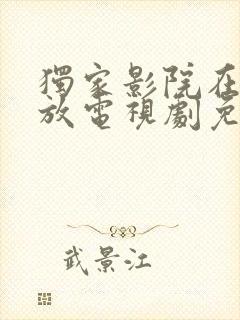 獨家影院在
放電視劇免
武景江